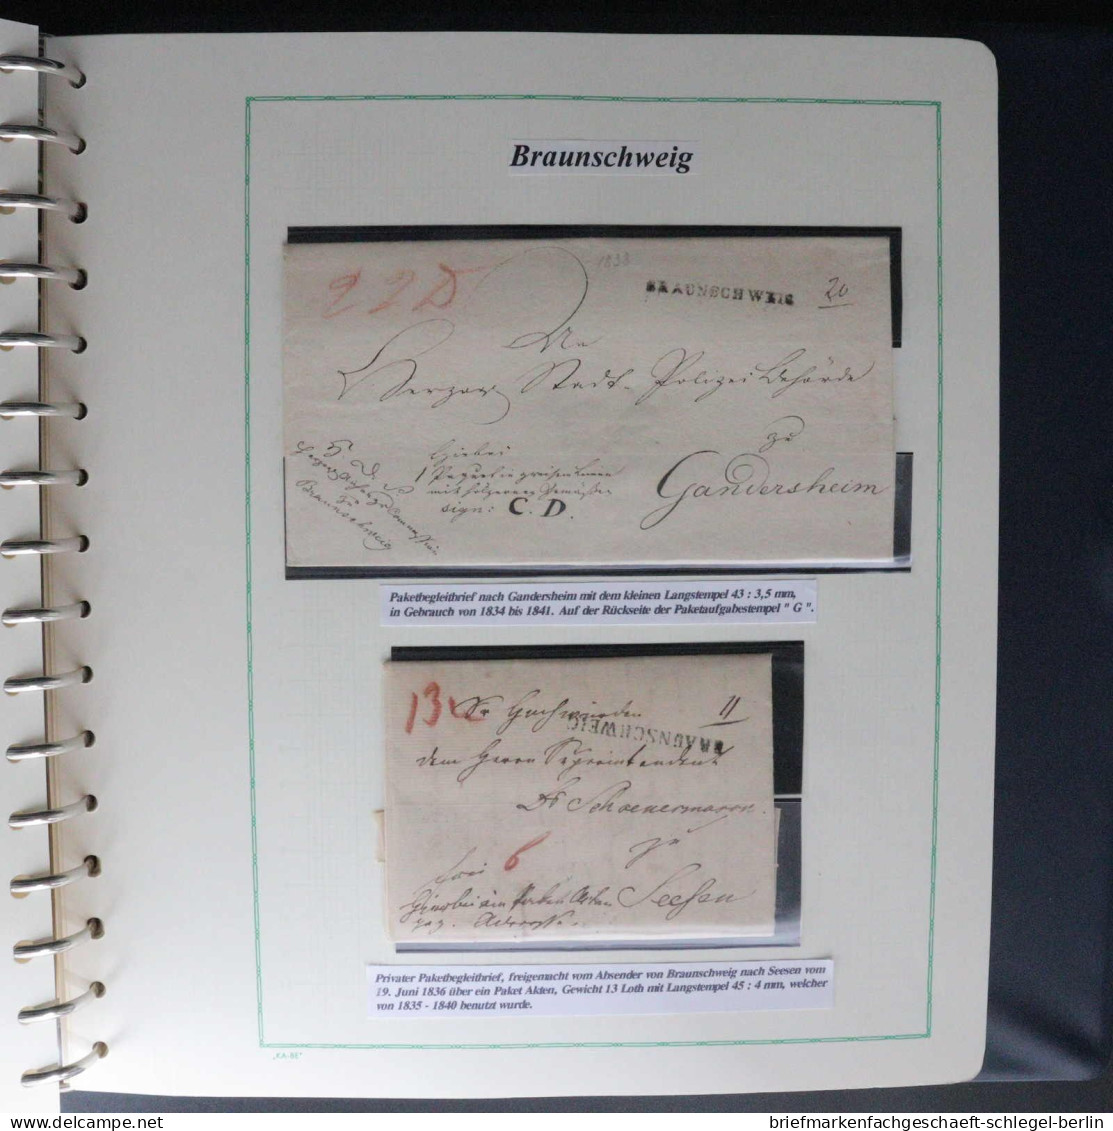 Braunschweig
1838
22D
BRAUNSCHWEIG
20
An
Herzogl Stadt-Polizei Behörde
zu
Gandersheim
H. D. S.
Braunschweig
Hiebei
sign: C. D.
Paketbegleitbrief nach Gandersheim mit dem kleinen Langstempel 43 : 3,5 mm,
in Gebrauch von 1834 bis 1841. Auf der Rückseite der Paketaufgabestempel " G ".
13
Sr Hochwürden
11
BRAUNSCHWEIG
dem Herrn Superintendent
Dr Schoenermann
zu
frei 6
Hierbei ein Packet Akten Seesen
Adresse.
Privater Paketbegleitbrief, freigemacht vom Absender von Braunschweig nach Seesen vom
19. Juni 1836 über ein Paket Akten, Gewicht 13 Loth mit Langstempel 45 : 4 mm, welcher
von 1835 - 1840 benutzt wurde.
"KA-BE"
delcampe.net
briefmarkenfachgeschaeft-schlegel-berlin